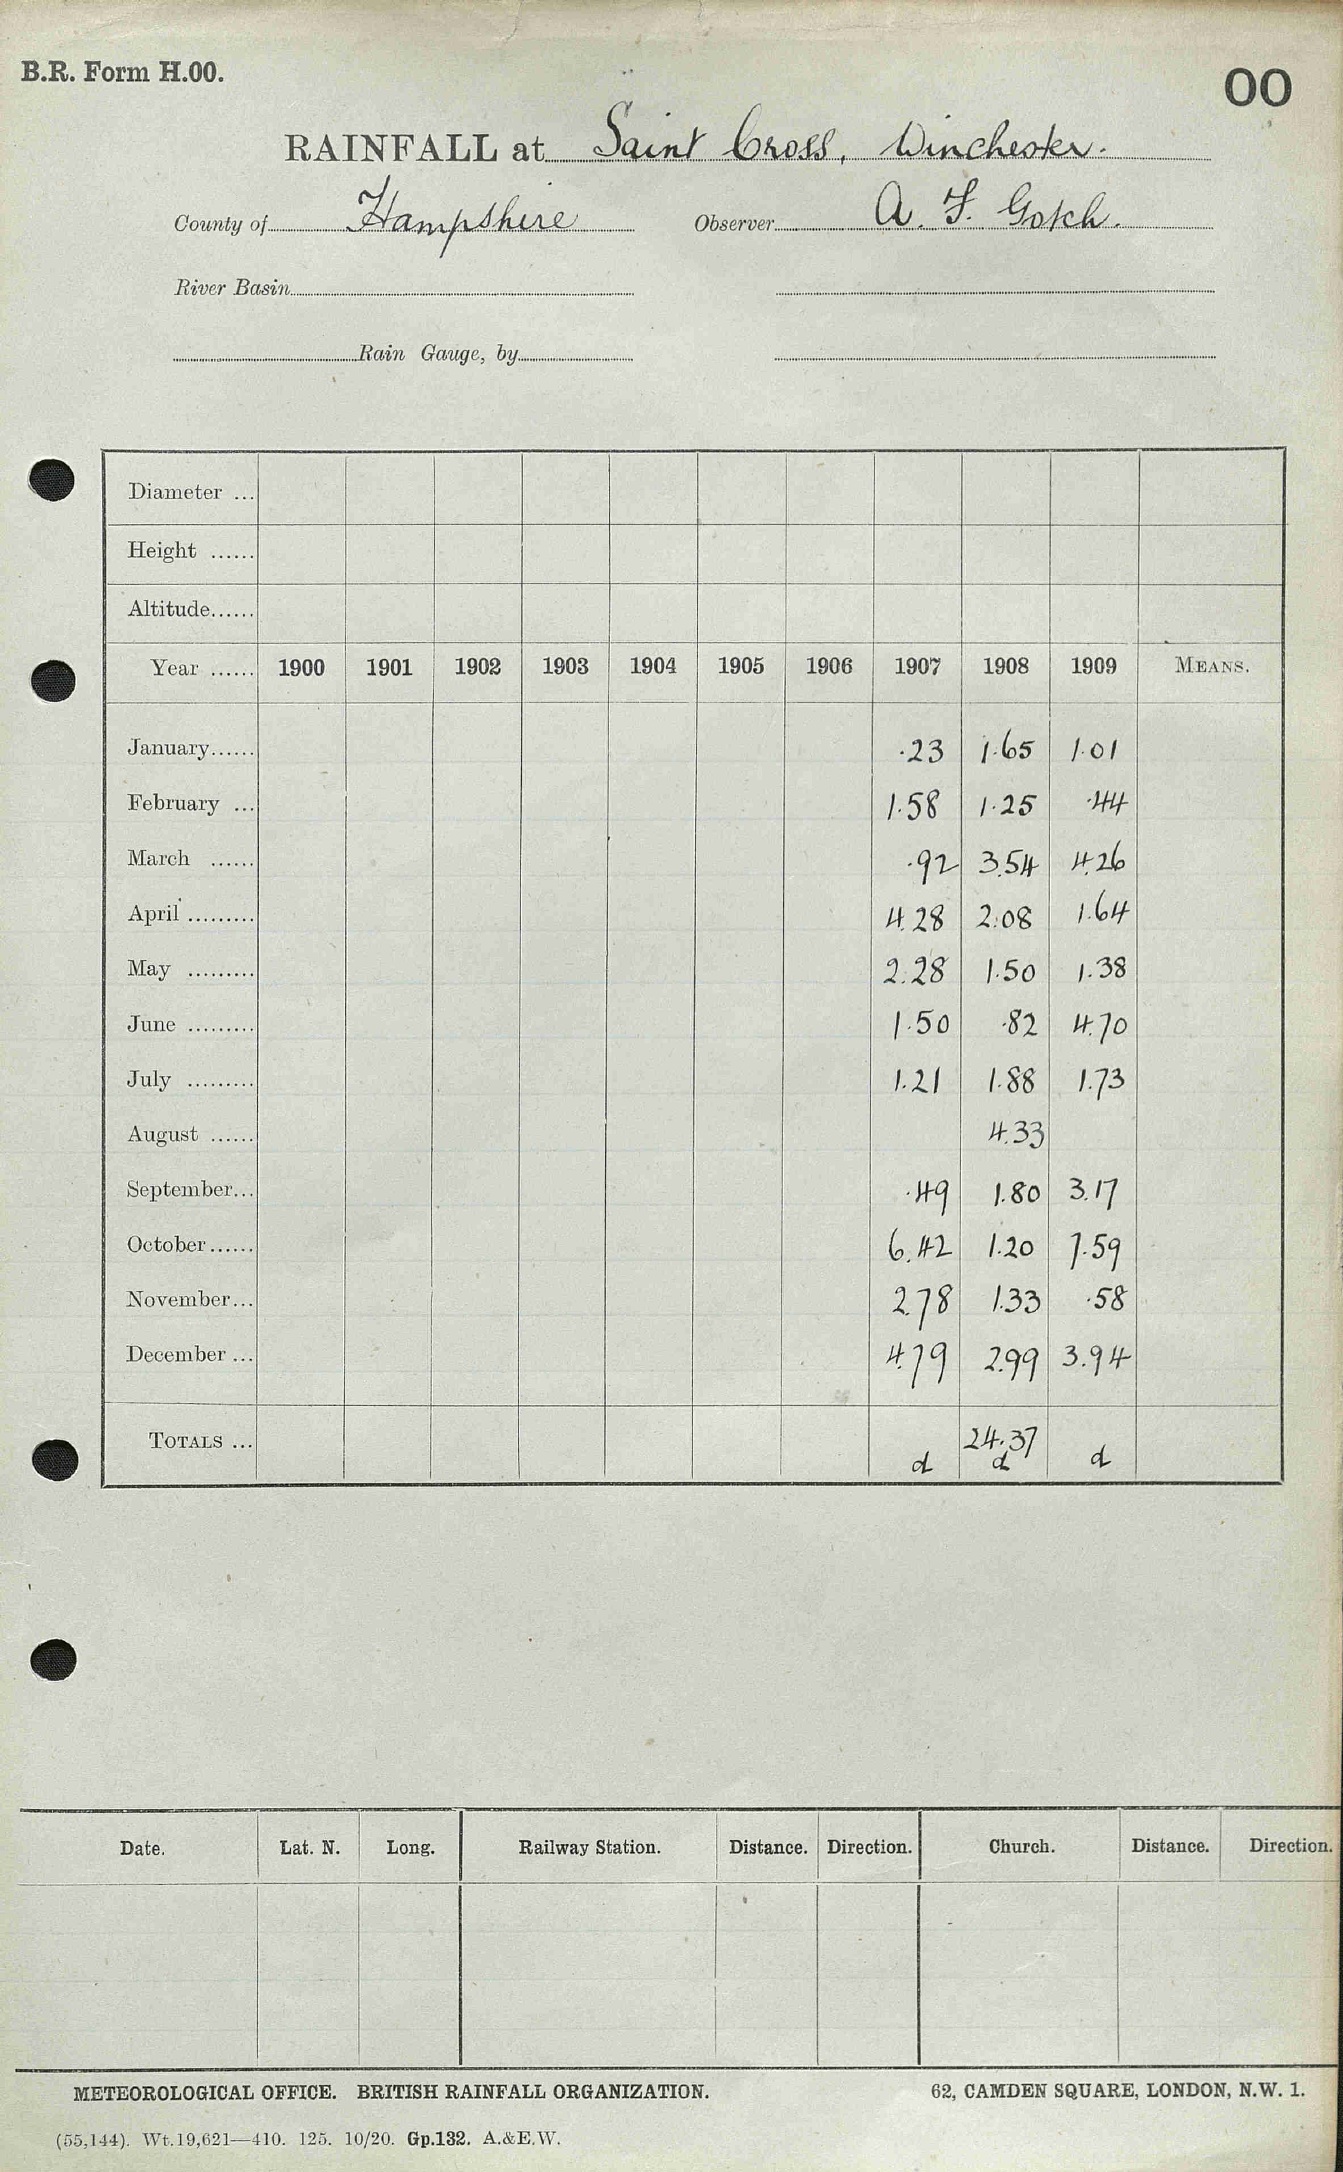 B.R. Form H.00.
00
RAINFALL at Saint Cross, Winchester.
County of Hampshire Observer A. F. Gotch.
River Basin
Rain Gauge, by
Diameter ...
Height ......
Altitude......
Year ...... 1900 1901 1902 1903 1904 1905 1906 1907 1908 1909 MEANS.
January...... .23 1.65 1.01
February ... 1.58 1.25 .44
March ...... .92 3.54 4.26
April ......... 4.28 2.08 1.64
May ......... 2.28 1.50 1.38
June ......... 1.50 .82 4.70
July ......... 1.21 1.88 1.73
August ...... 4.33
September... .49 1.80 3.17
October...... 6.42 1.20 7.59
November... 2.78 1.33 .58
December ... 4.79 2.99 3.94
TOTALS ... 24.37
d d d
Date. Lat. N. Long. Railway Station. Distance. Direction. Church. Distance. Direction.
METEOROLOGICAL OFFICE. BRITISH RAINFALL ORGANIZATION. 62, CAMDEN SQUARE, LONDON, N.W. 1.
(55,144). Wt.19,621—410. 125. 10/20. Gp.132. A.&E.W.